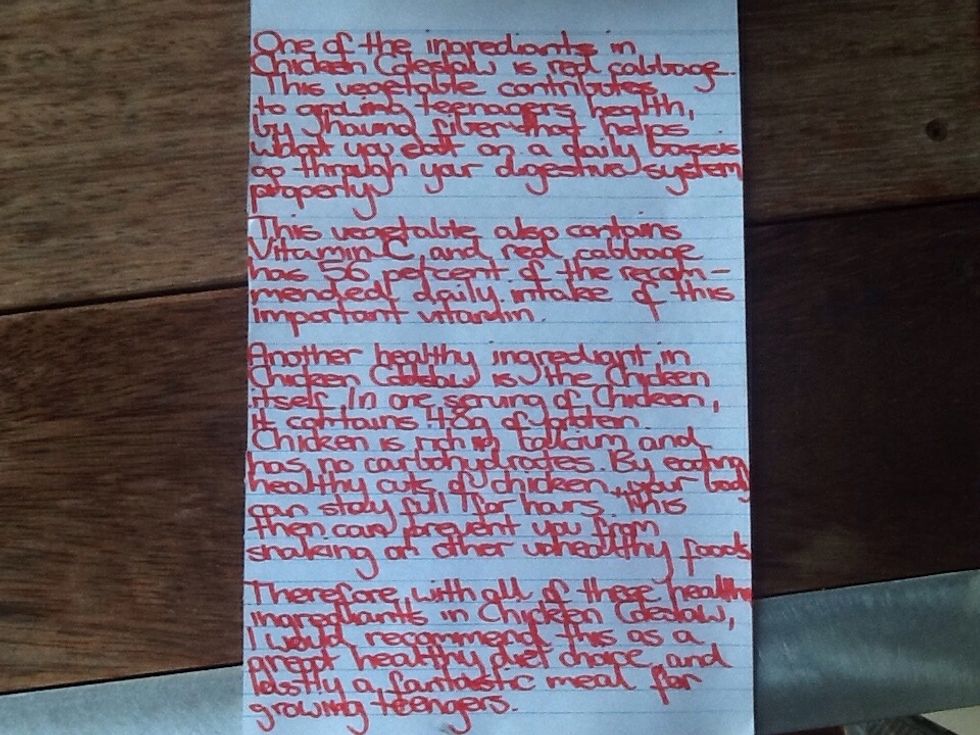 One of the ingrediants in
Chicken Coleslaw is red cabbage.
This vegetable contributes
to growing teenagers health,
by having fiber that helps
what you eat on a daily basis
go through your digestive system
properly.
This vegetable also contains
Vitamin C and red cabbage
has 56 percent of the recom-
mended daily intake of this
important vitamin.
Another healthy ingrediant in
Chicken Coleslaw is the Chicken
itself. In one serving of Chicken,
it contains 48g of protein.
Chicken is rich in calcium and
has no carbohydrates. By eating
healthy cuts of chicken, your body
can stay full for hours. This
then can prevent you from
snaking on other unhealthy foods
Therefore, with all of these healthy
ingrediants in Chicken Coleslaw,
I would recommend this as a
great healthy diet choice, and
lastly a fantastic meal for
growing teengers.